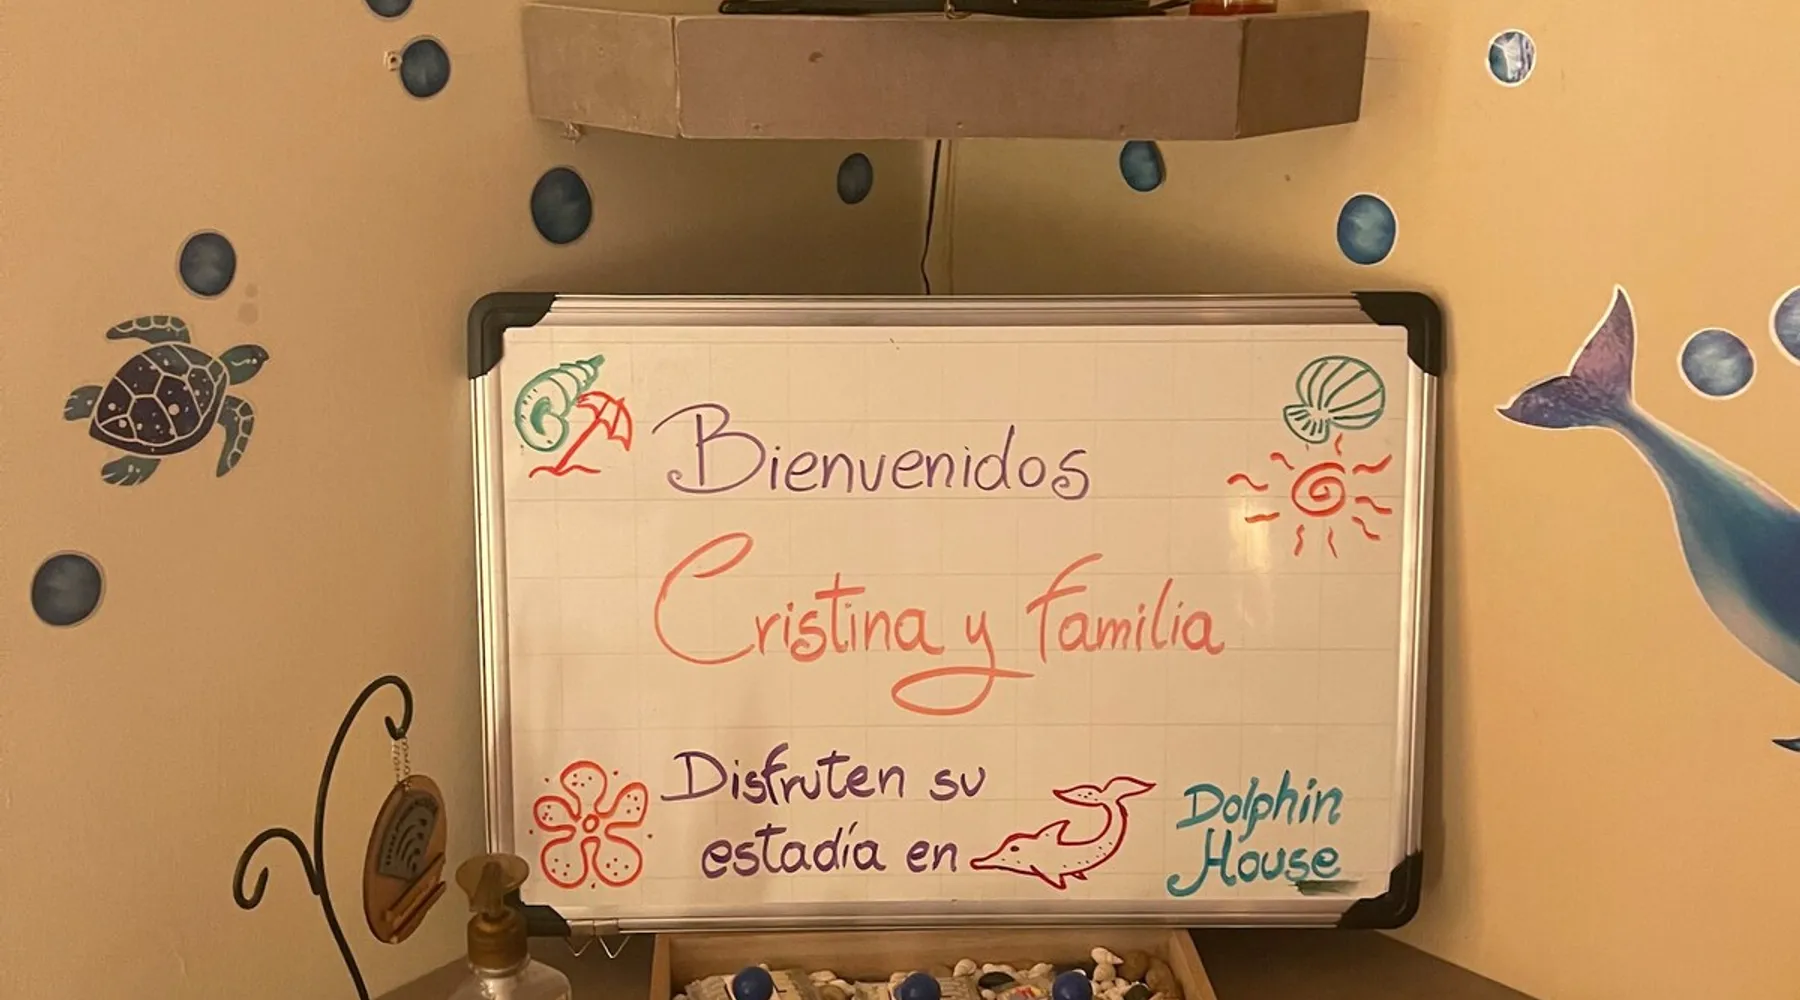 Bienvenidos
Cristina y familia
Disfruten su
estadía en
Dolphin
House